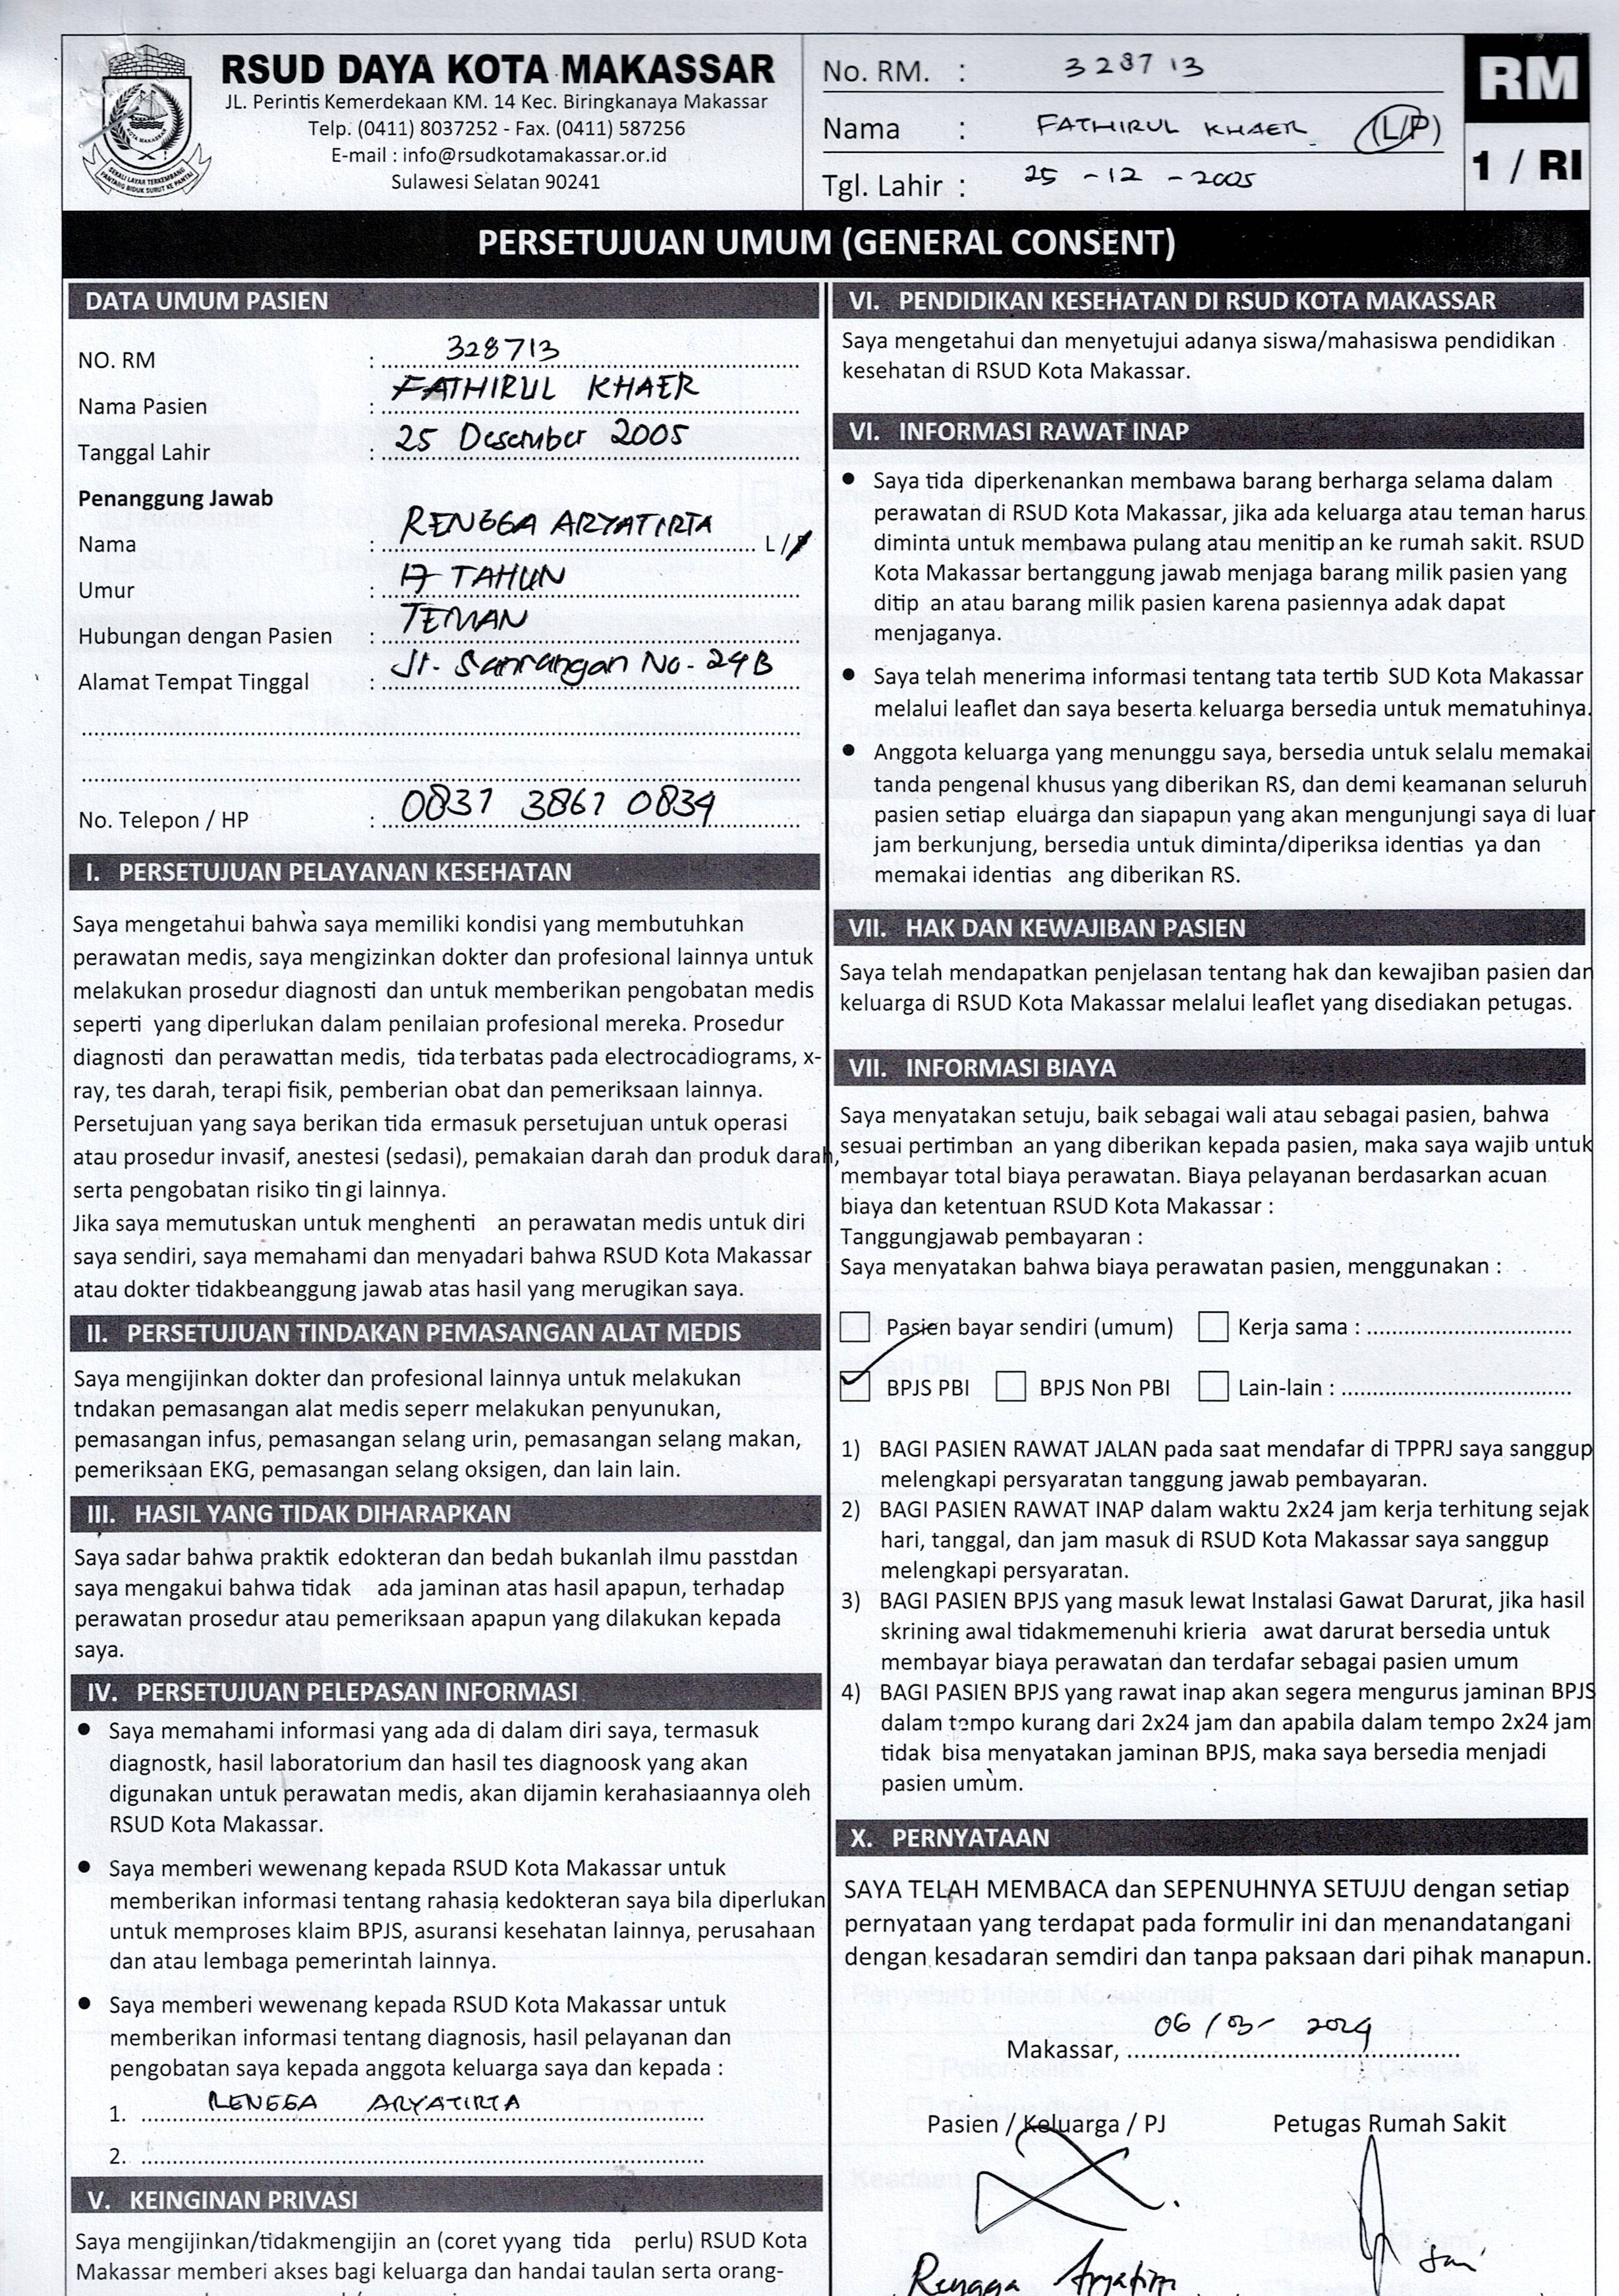 RSUD DAYA KOTA MAKASSAR
JL. Perintis Kemerdekaan KM. 14 Kec. Biringkanaya Makassar
Telp. (0411) 8037252 - Fax. (0411) 587256
E-mail : info@rsudkotamakassar.or.id
Sulawesi Selatan 90241
KOTA MAKASSAR
SEKALI LAYAR TERKEMBANG
PANTANG BIDUK SURUT KE PANTAI
No. RM. : 328713
Nama : FATHIRUL KHAER (L/P)
Tgl. Lahir : 25 - 12 - 2005
RM
1 / RI
PERSETUJUAN UMUM (GENERAL CONSENT)
DATA UMUM PASIEN
NO. RM : 328713
Nama Pasien : FATHIRUL KHAER
Tanggal Lahir : 25 Desember 2005
Penanggung Jawab
Nama : RENGGA ARYATIRTA L/P
Umur : 17 TAHUN
Hubungan dengan Pasien : TEMAN
Alamat Tempat Tinggal : Jl. Sanrangan No. 24B
No. Telepon / HP : 0831 3861 0834
I. PERSETUJUAN PELAYANAN KESEHATAN
Saya mengetahui bahwa saya memiliki kondisi yang membutuhkan
perawatan medis, saya mengizinkan dokter dan profesional lainnya untuk
melakukan prosedur diagnosti dan untuk memberikan pengobatan medis
seperti yang diperlukan dalam penilaian profesional mereka. Prosedur
diagnosti dan perawattan medis, tida terbatas pada electrocadiograms, x-
ray, tes darah, terapi fisik, pemberian obat dan pemeriksaan lainnya.
Persetujuan yang saya berikan tida ermasuk persetujuan untuk operasi
atau prosedur invasif, anestesi (sedasi), pemakaian darah dan produk darah,
serta pengobatan risiko tin gi lainnya.
Jika saya memutuskan untuk menghenti an perawatan medis untuk diri
saya sendiri, saya memahami dan menyadari bahwa RSUD Kota Makassar
atau dokter tidakbeanggung jawab atas hasil yang merugikan saya.
II. PERSETUJUAN TINDAKAN PEMASANGAN ALAT MEDIS
Saya mengijinkan dokter dan profesional lainnya untuk melakukan
tndakan pemasangan alat medis seperr melakukan penyunukan,
pemasangan infus, pemasangan selang urin, pemasangan selang makan,
pemeriksaan EKG, pemasangan selang oksigen, dan lain lain.
III. HASIL YANG TIDAK DIHARAPKAN
Saya sadar bahwa praktik edokteran dan bedah bukanlah ilmu passtdan
saya mengakui bahwa tidak ada jaminan atas hasil apapun, terhadap
perawatan prosedur atau pemeriksaan apapun yang dilakukan kepada
saya.
IV. PERSETUJUAN PELEPASAN INFORMASI
● Saya memahami informasi yang ada di dalam diri saya, termasuk
diagnostk, hasil laboratorium dan hasil tes diagnoosk yang akan
digunakan untuk perawatan medis, akan dijamin kerahasiaannya oleh
RSUD Kota Makassar.
● Saya memberi wewenang kepada RSUD Kota Makassar untuk
memberikan informasi tentang rahasia kedokteran saya bila diperlukan
untuk memproses klaim BPJS, asuransi kesehatan lainnya, perusahaan
dan atau lembaga pemerintah lainnya.
● Saya memberi wewenang kepada RSUD Kota Makassar untuk
memberikan informasi tentang diagnosis, hasil pelayanan dan
pengobatan saya kepada anggota keluarga saya dan kepada :
1. RENGGA ARYATIRTA
2.
V. KEINGINAN PRIVASI
Saya mengijinkan/tidakmengijin an (coret yyang tida perlu) RSUD Kota
Makassar memberi akses bagi keluarga dan handai taulan serta orang-
VI. PENDIDIKAN KESEHATAN DI RSUD KOTA MAKASSAR
Saya mengetahui dan menyetujui adanya siswa/mahasiswa pendidikan
kesehatan di RSUD Kota Makassar.
VI. INFORMASI RAWAT INAP
● Saya tida diperkenankan membawa barang berharga selama dalam
perawatan di RSUD Kota Makassar, jika ada keluarga atau teman harus
diminta untuk membawa pulang atau menitip an ke rumah sakit. RSUD
Kota Makassar bertanggung jawab menjaga barang milik pasien yang
ditip an atau barang milik pasien karena pasiennya adak dapat
menjaganya.
● Saya telah menerima informasi tentang tata tertib SUD Kota Makassar
melalui leaflet dan saya beserta keluarga bersedia untuk mematuhinya.
● Anggota keluarga yang menunggu saya, bersedia untuk selalu memakai
tanda pengenal khusus yang diberikan RS, dan demi keamanan seluruh
pasien setiap eluarga dan siapapun yang akan mengunjungi saya di luar
jam berkunjung, bersedia untuk diminta/diperiksa identias ya dan
memakai identias ang diberikan RS.
VII. HAK DAN KEWAJIBAN PASIEN
Saya telah mendapatkan penjelasan tentang hak dan kewajiban pasien dan
keluarga di RSUD Kota Makassar melalui leaflet yang disediakan petugas.
VII. INFORMASI BIAYA
Saya menyatakan setuju, baik sebagai wali atau sebagai pasien, bahwa
sesuai pertimban an yang diberikan kepada pasien, maka saya wajib untuk
membayar total biaya perawatan. Biaya pelayanan berdasarkan acuan
biaya dan ketentuan RSUD Kota Makassar :
Tanggungjawab pembayaran :
Saya menyatakan bahwa biaya perawatan pasien, menggunakan :
Pasien bayar sendiri (umum) Kerja sama :
BPJS PBI BPJS Non PBI Lain-lain :
1) BAGI PASIEN RAWAT JALAN pada saat mendafar di TPPRJ saya sanggup
melengkapi persyaratan tanggung jawab pembayaran.
2) BAGI PASIEN RAWAT INAP dalam waktu 2x24 jam kerja terhitung sejak
hari, tanggal, dan jam masuk di RSUD Kota Makassar saya sanggup
melengkapi persyaratan.
3) BAGI PASIEN BPJS yang masuk lewat Instalasi Gawat Darurat, jika hasil
skrining awal tidakmemenuhi krieria awat darurat bersedia untuk
membayar biaya perawatan dan terdafar sebagai pasien umum
4) BAGI PASIEN BPJS yang rawat inap akan segera mengurus jaminan BPJS
dalam tempo kurang dari 2x24 jam dan apabila dalam tempo 2x24 jam
tidak bisa menyatakan jaminan BPJS, maka saya bersedia menjadi
pasien umum.
X. PERNYATAAN
SAYA TELAH MEMBACA dan SEPENUHNYA SETUJU dengan setiap
pernyataan yang terdapat pada formulir ini dan menandatangani
dengan kesadaran semdiri dan tanpa paksaan dari pihak manapun.
Makassar, 06 / 03 - 2024
Pasien / Keluarga / PJ Petugas Rumah Sakit
Rengga